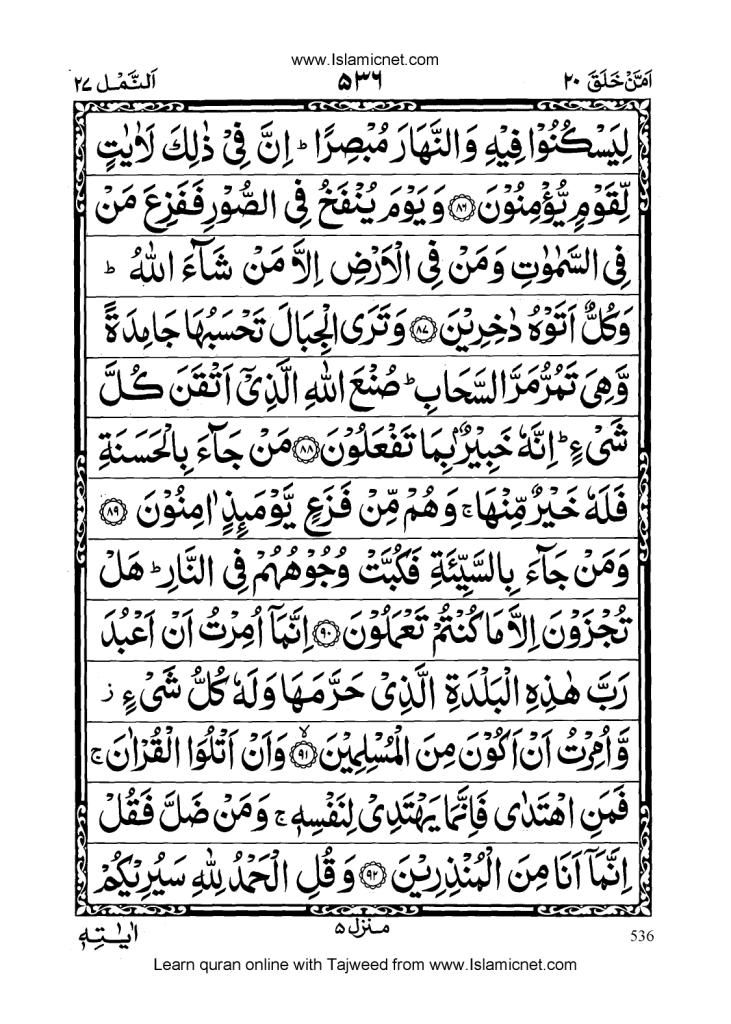 www.Islamicnet.com
اَمَّنْ خَلَقَ ٢٠
٥٣٦
اَلنَّمْل ٢٧
لِيَسْكُنُوْا فِيْهِ وَالنَّهَارَ مُبْصِرًا ؕ اِنَّ فِيْ ذٰلِكَ لَاٰيٰتٍ
لِّقَوْمٍ يُّؤْمِنُوْنَ ﴿٨٦﴾ وَيَوْمَ يُنْفَخُ فِي الصُّوْرِ فَفَزِعَ مَنْ
فِي السَّمٰوٰتِ وَمَنْ فِي الْاَرْضِ اِلَّا مَنْ شَآءَ اللّٰهُ ؕ
وَكُلٌّ اَتَوْهُ دٰخِرِيْنَ ﴿٨٧﴾ وَتَرَى الْجِبَالَ تَحْسَبُهَا جَامِدَةً
وَّهِيَ تَمُرُّ مَرَّ السَّحَابِ ؕ صُنْعَ اللّٰهِ الَّذِيْۤ اَتْقَنَ كُلَّ
شَيْءٍ ؕ اِنَّهٗ خَبِيْرٌۢ بِمَا تَفْعَلُوْنَ ﴿٨٨﴾ مَنْ جَآءَ بِالْحَسَنَةِ
فَلَهٗ خَيْرٌ مِّنْهَا ۚ وَهُمْ مِّنْ فَزَعٍ يَّوْمَىِٕذٍ اٰمِنُوْنَ ﴿٨٩﴾
وَمَنْ جَآءَ بِالسَّيِّئَةِ فَكُبَّتْ وُجُوْهُهُمْ فِي النَّارِ ؕ هَلْ
تُجْزَوْنَ اِلَّا مَا كُنْتُمْ تَعْمَلُوْنَ ﴿٩٠﴾ اِنَّمَاۤ اُمِرْتُ اَنْ اَعْبُدَ
رَبَّ هٰذِهِ الْبَلْدَةِ الَّذِيْ حَرَّمَهَا وَلَهٗ كُلُّ شَيْءٍ ز
وَّاُمِرْتُ اَنْ اَكُوْنَ مِنَ الْمُسْلِمِيْنَ ۙ﴿٩١﴾ وَاَنْ اَتْلُوَا الْقُرْاٰنَ ۚ
فَمَنِ اهْتَدٰى فَاِنَّمَا يَهْتَدِيْ لِنَفْسِهٖ ۚ وَمَنْ ضَلَّ فَقُلْ
اِنَّمَاۤ اَنَا مِنَ الْمُنْذِرِيْنَ ﴿٩٢﴾ وَقُلِ الْحَمْدُ لِلّٰهِ سَيُرِيْكُمْ
منزل ٥
اٰيٰتِهٖ
536
Learn quran online with Tajweed from www.Islamicnet.com